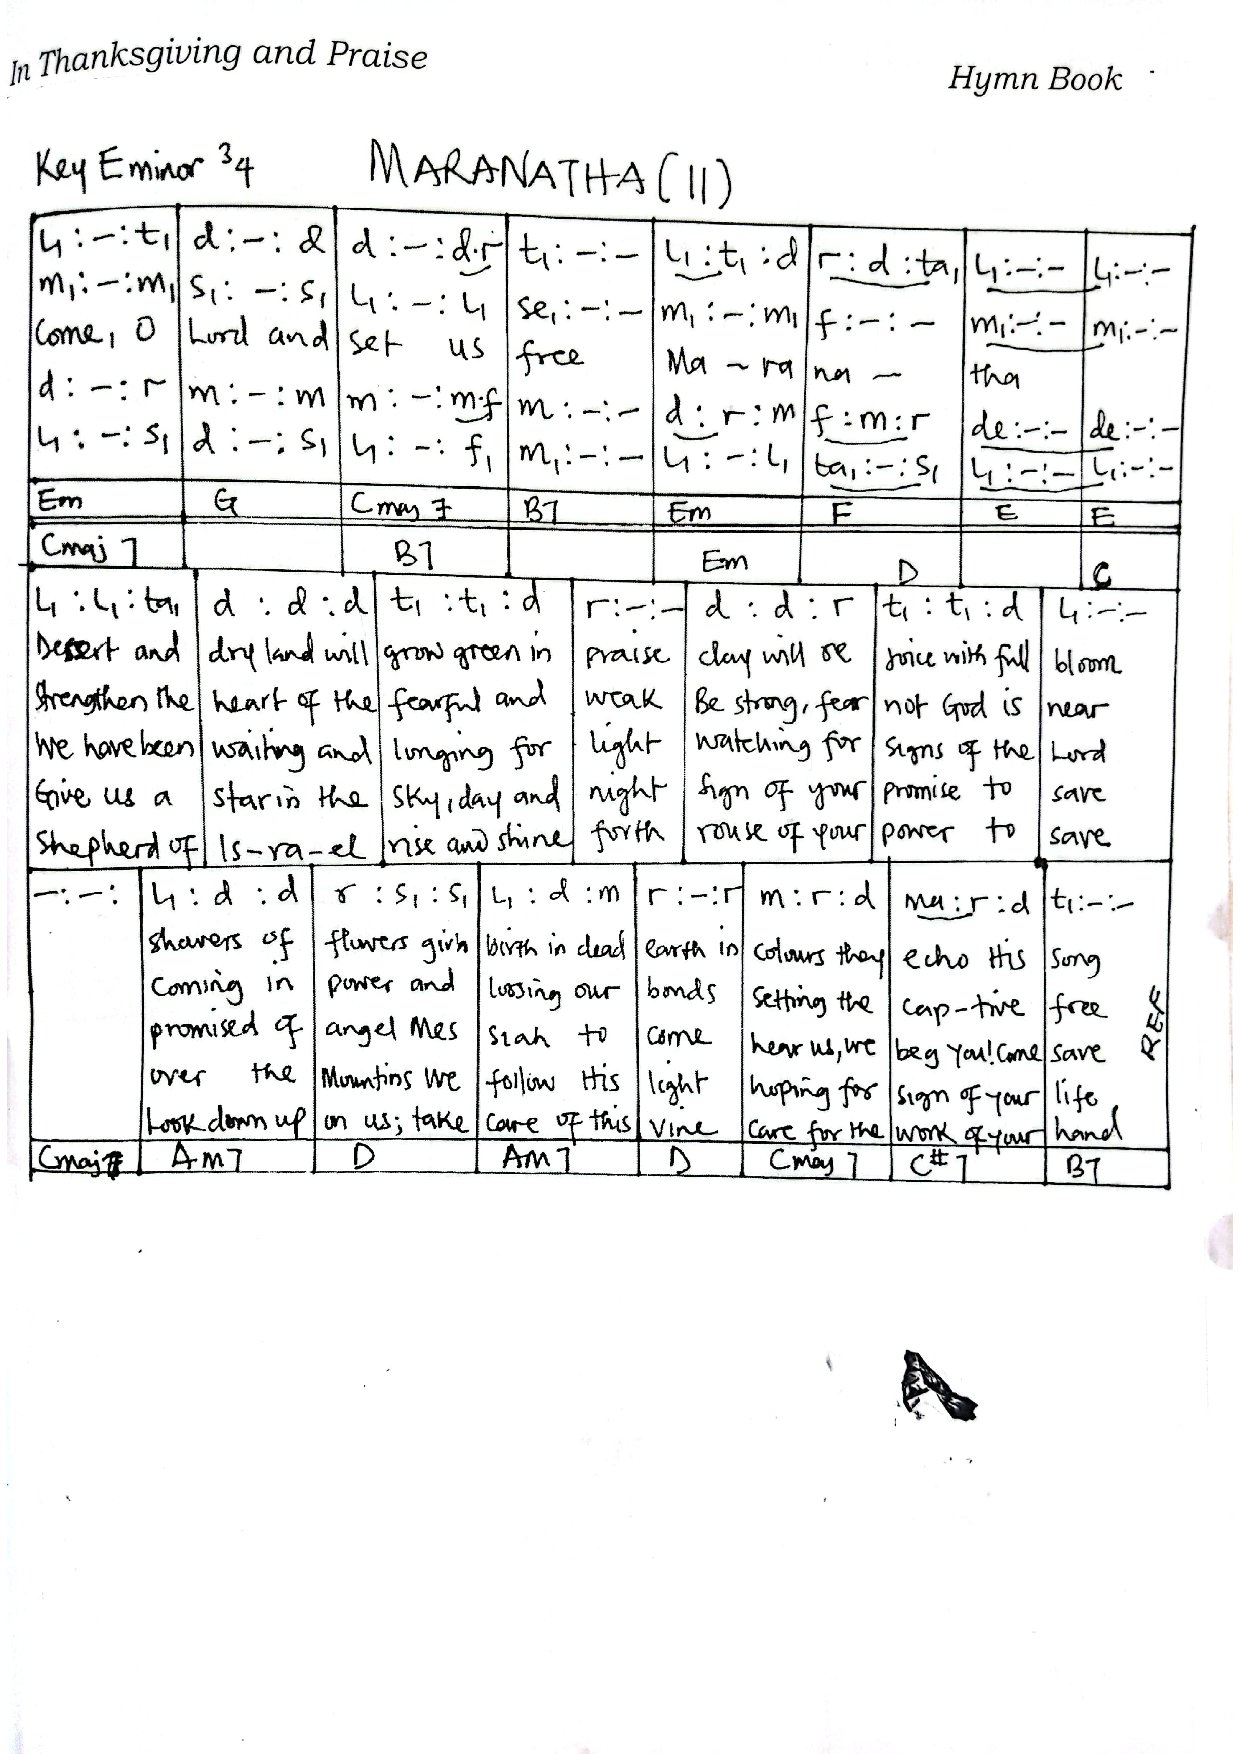 In Thanksgiving and Praise
Hymn Book
Key E minor 3/4 MARANATHA (II)
l₁ : – : t₁ | d : – : d | d : – : d.r | t₁ : – : – | l₁ : t₁ : d | r : d : ta₁ | l₁ : – : – | l₁ : – : –
m₁ : – : m₁ | s₁ : – : s₁ | l₁ : – : l₁ | se₁ : – : – | m₁ : – : m₁ | f : – : – | m₁ : – : – | m₁ : – : –
Come, O | Lord and | set us | free | Ma – ra | na – | tha
d : – : r | m : – : m | m : – : m.f | m : – : – | d : r : m | f : m : r | de : – : – | de : – : –
l₁ : – : s₁ | d : – : s₁ | l₁ : – : f₁ | m₁ : – : – | l₁ : – : l₁ | ta₁ : – : s₁ | l₁ : – : – | l₁ : – : –
Em | G | Cmaj 7 | B7 | Em | F | E | E
Cmaj 7 | | B7 | | Em | D | | C
l₁ : l₁ : ta₁ | d : d : d | t₁ : t₁ : d | r : – : – | d : d : r | t₁ : t₁ : d | l₁ : – : –
Desert and | dry land will | grow green in | praise | clay will re | joice with full | bloom
Strengthen the | heart of the | fearful and | weak | Be strong, fear | not God is | near
We have been | waiting and | longing for | light | watching for | signs of the | Lord
Give us a | star in the | sky, day and | night | Sign of your | promise to | save
Shepherd of | Is-ra-el | rise and shine | forth | rouse of your | power to | save
– : – : | l₁ : d : d | r : s₁ : s₁ | l₁ : d : m | r : – : r | m : r : d | ma : r : d | t₁ : – : –
showers of | flowers givh | birth in dead | earth in | colours they | echo His | song
Coming in | power and | loosing our | bonds | Setting the | cap-tive | free
promised of | angel Mes | siah to | come | hear us, we | beg You! Come | save
over the | Mountins We | follow His | light | hoping for | sign of your | life
Look down up | on us; take | care of this | vine | Care for the | work of your | hand
REF
Cmaj7 | Am7 | D | Am7 | D | Cmaj 7 | C#7 | B7